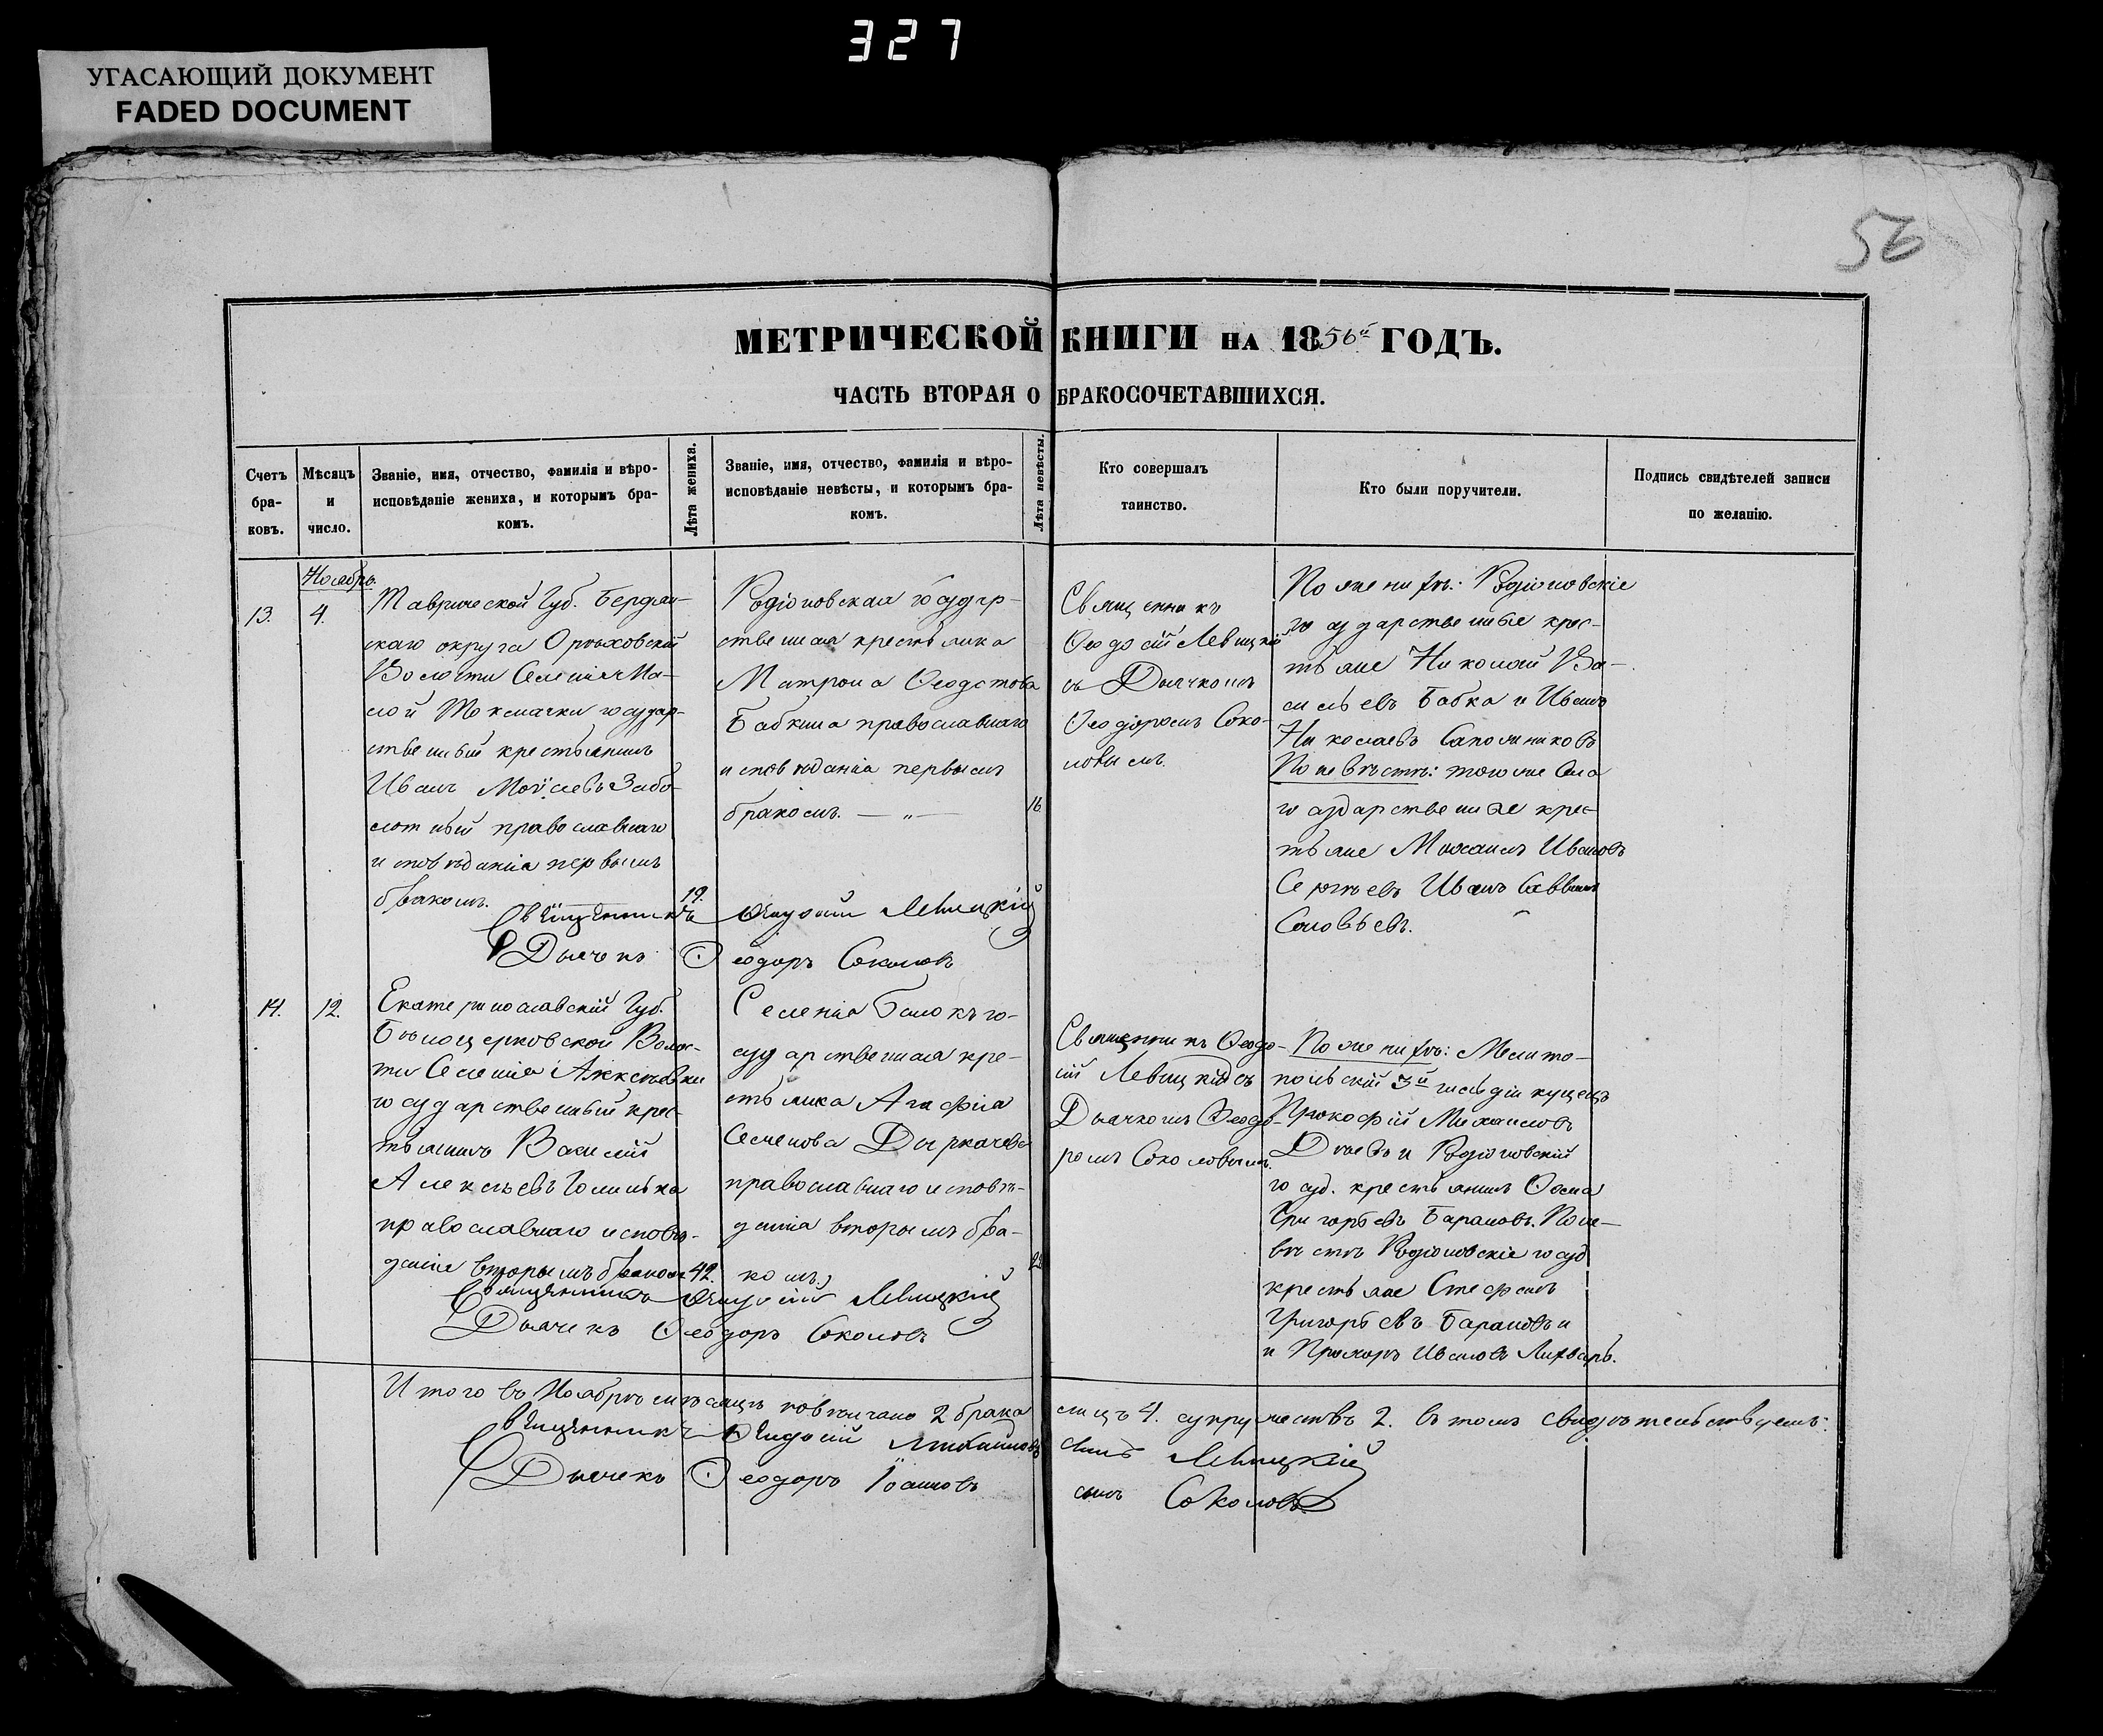 327
УГАСАЮЩИЙ ДОКУМЕНТ
FADED DOCUMENT
56
МЕТРИЧЕСКОЙ КНИГИ НА 1856й ГОДЪ.
ЧАСТЬ ВТОРАЯ О БРАКОСОЧЕТАВШИХСЯ.
Счетъ
бра-
ковъ.
Мѣсяцъ
и
число.
Званіе, имя, отчество, фамилія и вѣро-
исповѣданіе жениха, и которымъ бра-
комъ.
Лѣта жениха.
Званіе, имя, отчество, фамилія и вѣро-
исповѣданіе невѣсты, и которымъ бра-
комъ.
Лѣта невѣсты.
Кто совершалъ
таинство.
Кто были поручители.
Подпись свидѣтелей записи
по желанію.
13.
Ноябрь
4.
Таврической Губ. Бердян-
скаго округа Орѣховской
Волости Селенія Ма-
лой Токмачки государ-
ственный крестьянинъ
Иванъ Моѵсеевъ Забо-
лотный православнаго
исповѣданія первымъ
бракомъ.
19.
Родіоновская государ-
ственная крестьянка
Матрона
Бабкина православнаго
исповѣданія первымъ
бракомъ. — „ —
16
Священникъ
Ѳеодосій Левицкій
съ Дьячкомъ
Ѳеодоромъ Соко-
ловымъ.
По женихѣ: Родіоновскіе
государственные крес-
тьяне Николай Ва-
сильевъ Бабка и Иванъ
Николаевъ Сапожниковъ
По невѣстѣ: того же Села
государственные крес-
тьяне Михаилъ Ивановъ
Сергѣевъ Иванъ Саввинъ
Соловьевъ.
Священникъ Ѳеодосій Левицкій
Дьячекъ Ѳеодоръ Соколовъ
14.
12.
Екатеринославской Губ.
Бѣлоцерковской Волос-
ти Селенія Алексѣевки
государственный крес-
тьянинъ Василій
Алексѣевъ Голинька
православнаго исповѣ-
данія вторымъ бракомъ
42.
Селенія Балокъ го-
сударственная кре-
стьянка Агафія
Семенова Дыркачева
православнаго исповѣ-
данія вторымъ бра-
комъ.
Священникъ Ѳеодо-
сій Левицкій съ
Дьячкомъ Ѳеодо-
ромъ Соколовымъ.
По женихѣ: Мелито-
польскій 3й гильдіи купецъ
Прокофій Михаиловъ
и Родіоновскій
госуд. крестьянинъ Ѳома
Григорьевъ Барановъ. По не-
вѣстѣ Родіоновскіе госуд.
крестьяне Стефанъ
Григорьевъ Барановъ и
и Прохоръ Ивановъ Лихварь.
Священникъ Ѳеодосій Левицкій
Дьячекъ Ѳеодоръ Соколовъ
Итого въ Ноябрѣ мѣсяцѣ повѣнчано 2 брака лицъ 4. супружествъ 2. въ томъ свидѣтельствуемъ:
Священникъ Ѳеодосій Михайловъ сынъ Левицкій
Дьячекъ Ѳеодоръ Іоанновъ сынъ Соколовъ